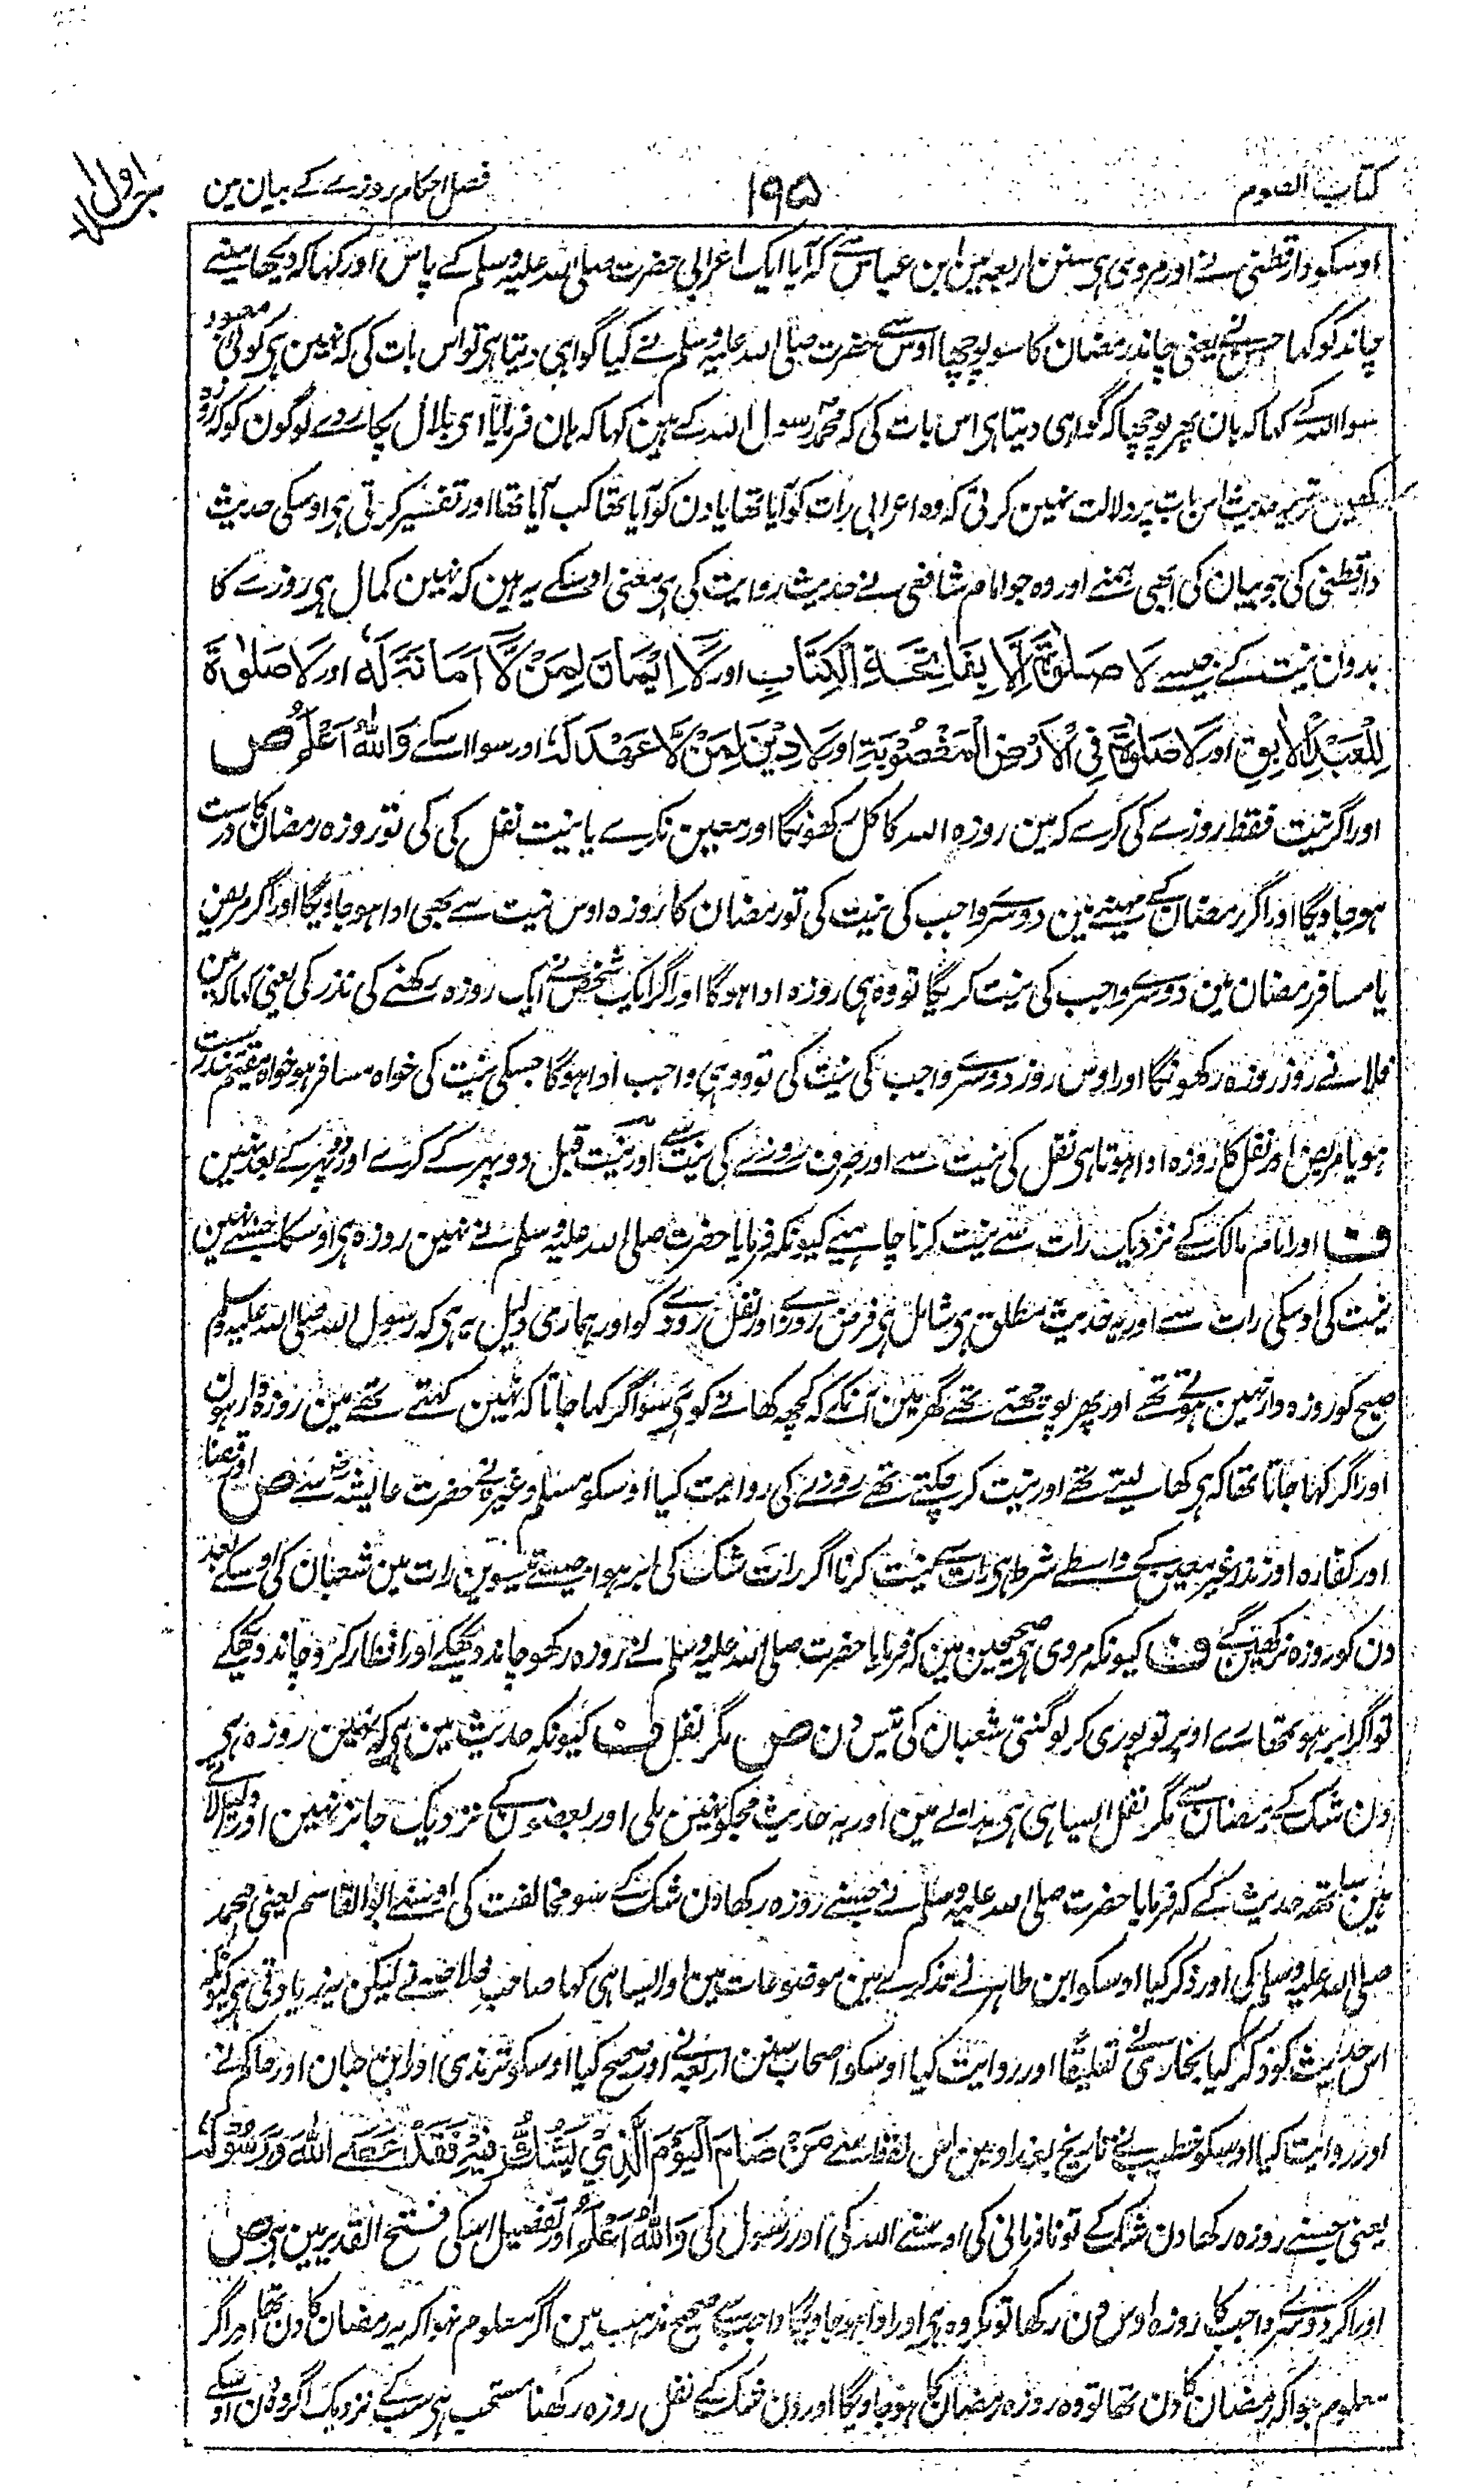 کتاب الصوم
۱۹۵
فصل احکام روزے کے بیان مین
جلد اول
اوسکو دارقطنی نے اور مروی ہی سنن اربعہ مین ابن عباس سے کہ آیا ایک اعرابی حضرت صلی اللہ علیہ وسلم کے پاس اور کہا کہ دیکھا مینے
چاند کو کہا حسن نے یعنی چاند رمضان کا سو پوچھا اوس سے حضرت صلی اللہ علیہ وسلم نے کیا گواہی دیتا ہی تو اس بات کی کہ نہین ہی کوئی معبود
سوا اللہ کے کہا کہ ہان پھر پوچھا کہ گواہی دیتا ہی اس بات کی کہ محمد رسول اللہ کے ہین کہا کہ ہان فرمایا ای بلال پکار دے لوگون کو کہ روزہ
رکھین تو یہ حدیث اس بات پر دلالت نہین کرتی کہ وہ اعرابی رات کو آیا تھا یا دن کو آیا تھا کب آیا تھا اور تفسیر کرتی ہی اوسکی حدیث
دارقطنی کی جو بیان کی ابھی ہمنے اور وہ جو امام شافعی نے حدیث روایت کی ہی معنی اوسکے یہ ہین کہ نہین کمال ہی روزے کا
بدون نیت کے جیسے لَا صَلٰوةَ اِلَّا بِفَاتِحَةِ الْكِتَابِ اور لَا اِيْمَانَ لِمَنْ لَّا اَمَانَةَ لَهٗ اور لَا صَلٰوةَ
لِلْعَبْدِ الْاٰبِقِ اور لَا صَلٰوةَ فِي الْاَرْضِ الْمَغْصُوْبَةِ اور لَا دِيْنَ لِمَنْ لَّا عَهْدَ لَهٗ اور سوا اسکے وَاللّٰهُ اَعْلَمُ ص
اور اگر نیت فقط روزے کی کرے کہ مین روزہ اللہ کا کل رکھونگا اور معین نکرے یا نیت نفل کی کی تو روزہ رمضان کا درست
ہو جاویگا اور اگر رمضان کے مہینے مین دوسرے واجب کی نیت کی تو رمضان کا روزہ اوس نیت سے بھی ادا ہو جاویگا اور اگر مریض
یا مسافر رمضان مین دوسرے واجب کی نیت کریگا تو وہ ہی روزہ ادا ہوگا اور اگر ایک شخص نے ایک روزہ رکھنے کی نذر کی یعنی کہا کہ مین
فلانے روز روزہ رکھونگا اور اوس روز دوسرے واجب کی نیت کی تو وہی واجب ادا ہوگا جسکی نیت کی خواہ مسافر ہو خواہ مقیم تندرست
ہو یا مریض اور نفل کا روزہ ادا ہوتا ہی نفل کی نیت سے اور صرف روزے کی نیت سے اور نیت قبل دوپہر کے کرے اور دوپہر کے بعد نہین
ف اور امام مالک کے نزدیک رات سے نیت کرنا چاہیے کیونکہ فرمایا حضرت صلی اللہ علیہ وسلم نے نہین روزہ ہی اوسکا جسنے نہین
نیت کی اوسکی رات سے اور یہ حدیث مطلق ہی شامل ہی فرض روزے اور نفل روزے کو اور ہماری دلیل یہ ہی کہ رسول اللہ صلی اللہ علیہ وسلم
صبح کو روزہ دار نہین ہوتے تھے اور پھر پوچھتے تھے گھر مین آنکے کہ کچھ کھانے کو ہی سو اگر کہا جاتا کہ نہین کہتے تھے مین روزہ دار ہون
اور اگر کہا جاتا تھا کہ ہی کھا لیتے تھے اور نیت کر چکتے تھے روزے کی روایت کیا اوسکو مسلم وغیرہ نے حضرت عایشہ سے ص اور قضا
اور کفارہ اور نذر غیر معین کے واسطے شرط ہی رات سے نیت کرنا اگر رات شک کی ابر ہو اوجیسے تیسوین رات مین شعبان کی اوسکے بعد
دن کو روزہ نرکھین گے ف کیونکہ مروی ہی صحیحین مین کہ فرمایا حضرت صلی اللہ علیہ وسلم نے روزہ رکھو چاند دیکھکے اور افطار کرو چاند دیکھکے
تو اگر ابر ہو تمھارے اوپر تو پوری کر لو گنتی شعبان کی تیس دن ص مگر نفل ف کیونکہ حدیث مین ہی کہ نہین روزہ ہی
دن شک کے رمضان سے مگر نفل ایسا ہی ہی ہدایے مین اور یہ حدیث مجکو نہین ملی اور بعضون کے نزدیک جائز نہین اور دلیل لائے
ہین ساتھ حدیث کے کہ فرمایا حضرت صلی اللہ علیہ وسلم نے جسنے روزہ رکھا دن شک کے سو مخالفت کی اوسنے ابو القاسم یعنی محمد
صلی اللہ علیہ وسلم کی اور ذکر کیا اوسکو ابن طاہر نے تذکرے مین موضوعات مین اور ایسا ہی کہا صاحب خلاصہ نے لیکن یہ زیادتی ہی کیونکہ
اس حدیث کو ذکر کیا بخاری نے تعلیقًا اور روایت کیا اوسکو اصحاب سنن اربعہ نے اور صحیح کیا اوسکو ترمذی اور ابن حبان اور حاکم نے
اور روایت کیا اوسکو خطیب نے تاریخ بغداد مین اس لفظ سے مَنْ صَامَ الْيَوْمَ الَّذِيْ يُشَكُّ فِيْهِ فَقَدْ عَصَى اللّٰهَ وَرَسُوْلَهٗ
یعنی جسنے روزہ رکھا دن شک کے تو نافرمانی کی اوسنے اللہ کی اور رسول کی وَاللّٰهُ اَعْلَمُ اور تفصیل اسکی فتح القدیر مین ہی ص
اور اگر دوسرے واجب کا روزہ اوس دن رکھا تو مکروہ ہی اور ادا ہو جاویگا واجب سے صحیح مذہب مین اگر معلوم نہوا کہ یہ رمضان کا دن تھا اور اگر
معلوم ہوا کہ رمضان کا دن تھا تو وہ روزہ رمضان کا ہو جاویگا اور دن شک کے نفل روزہ رکھنا مستحب ہی سب کے نزدیک اگر وہ دن اوسکے